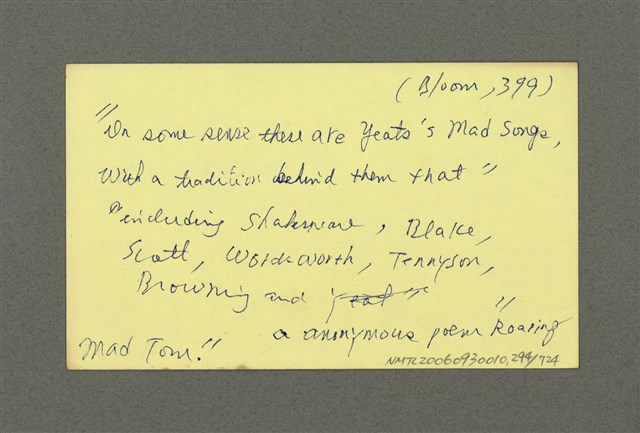 (Bloom, 399)
"In some sense these are Yeats's Mad Songs,
With a tradition behind them that"
"including Shakespeare, Blake,
Scott, Wordsworth, Tennyson,
Browning and
a anonymous poem "Roaring
Mad Tom."
NMTL20060930010,294/724